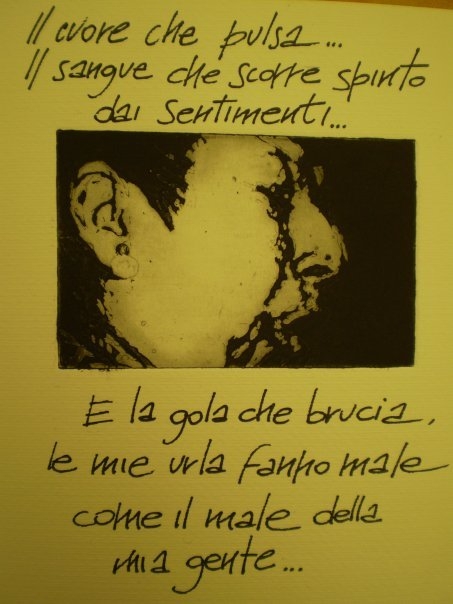 Il cuore che pulsa...
Il sangue che scorre spinto
dai sentimenti...
E la gola che brucia,
le mie urla fanno male
come il male della
mia gente...